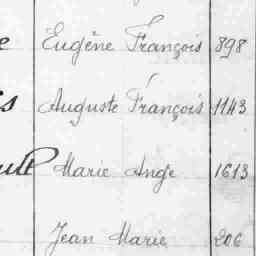 Eugène François 898
Auguste François 1143
Marie Ange 1613
Jean Marie 206